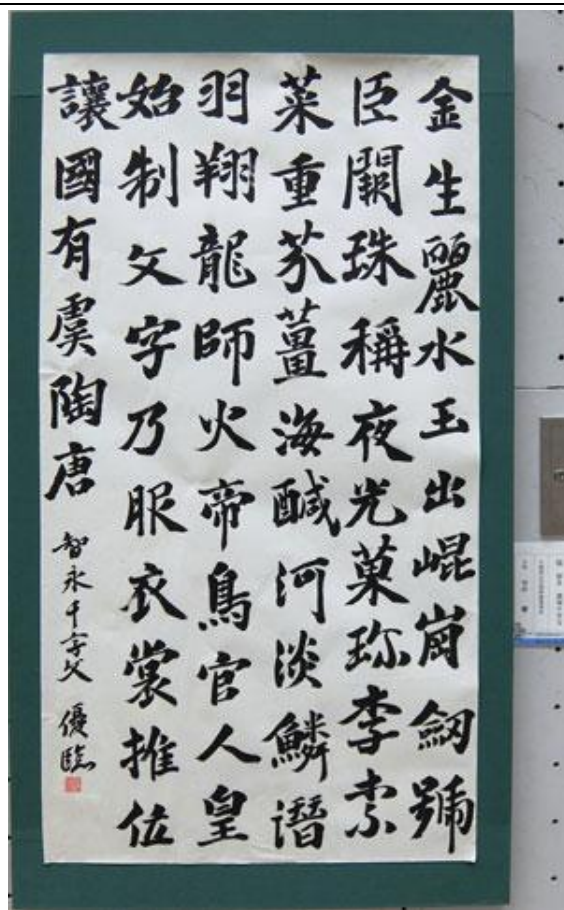 金生麗水玉出崐崗劒號
臣闕珠稱夜光菓珎李柰
菜重芥薑海醎河淡鱗潛
羽翔龍師火帝鳥官人皇
始制文字乃服衣裳推位
讓國有虞陶唐
智永千字文 優臨